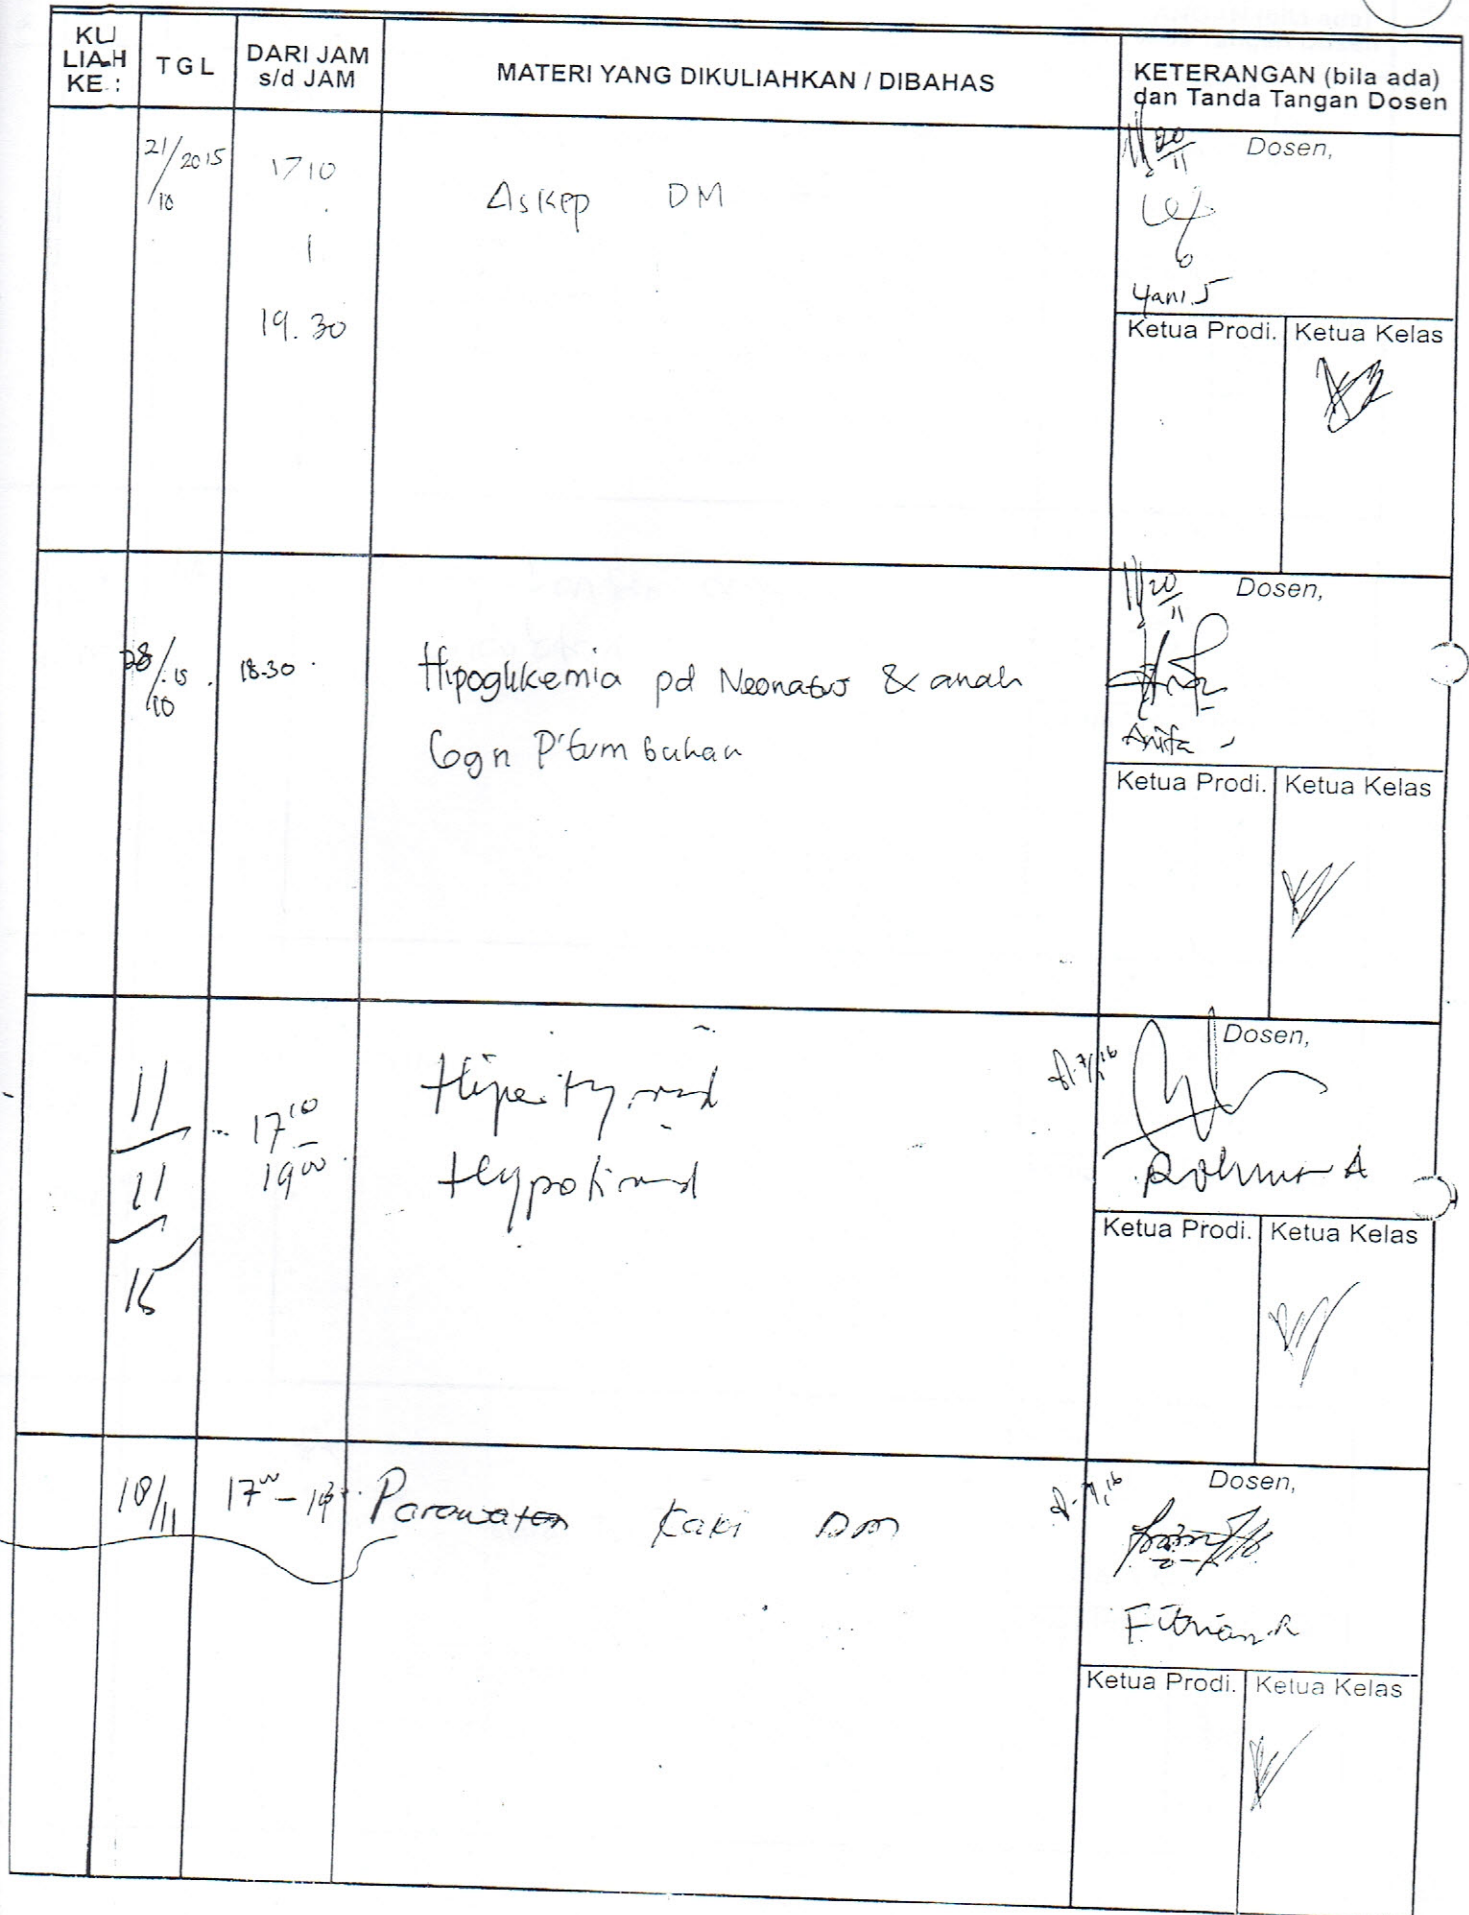 KU
LIAH
KE :
TGL
DARI JAM
s/d JAM
MATERI YANG DIKULIAHKAN / DIBAHAS
KETERANGAN (bila ada)
dan Tanda Tangan Dosen
21/10 2015
1710
19.30
Askep DM
20/11
Dosen,
Yani.S
Ketua Prodi.
Ketua Kelas
28/10 15.
18.30
Hipoglikemia pd Neonatus & anak
P'tumbuhan
20/11
Dosen,
Anita
Ketua Prodi.
Ketua Kelas
11
11
15
17 10
-
19 00
Hipertyroid
Hypotiroid
Dosen,
Rohman A
Ketua Prodi.
Ketua Kelas
18/11
17 00 -
Perawatan Kaki DM
Dosen,
Fitrian.R
Ketua Prodi.
Ketua Kelas